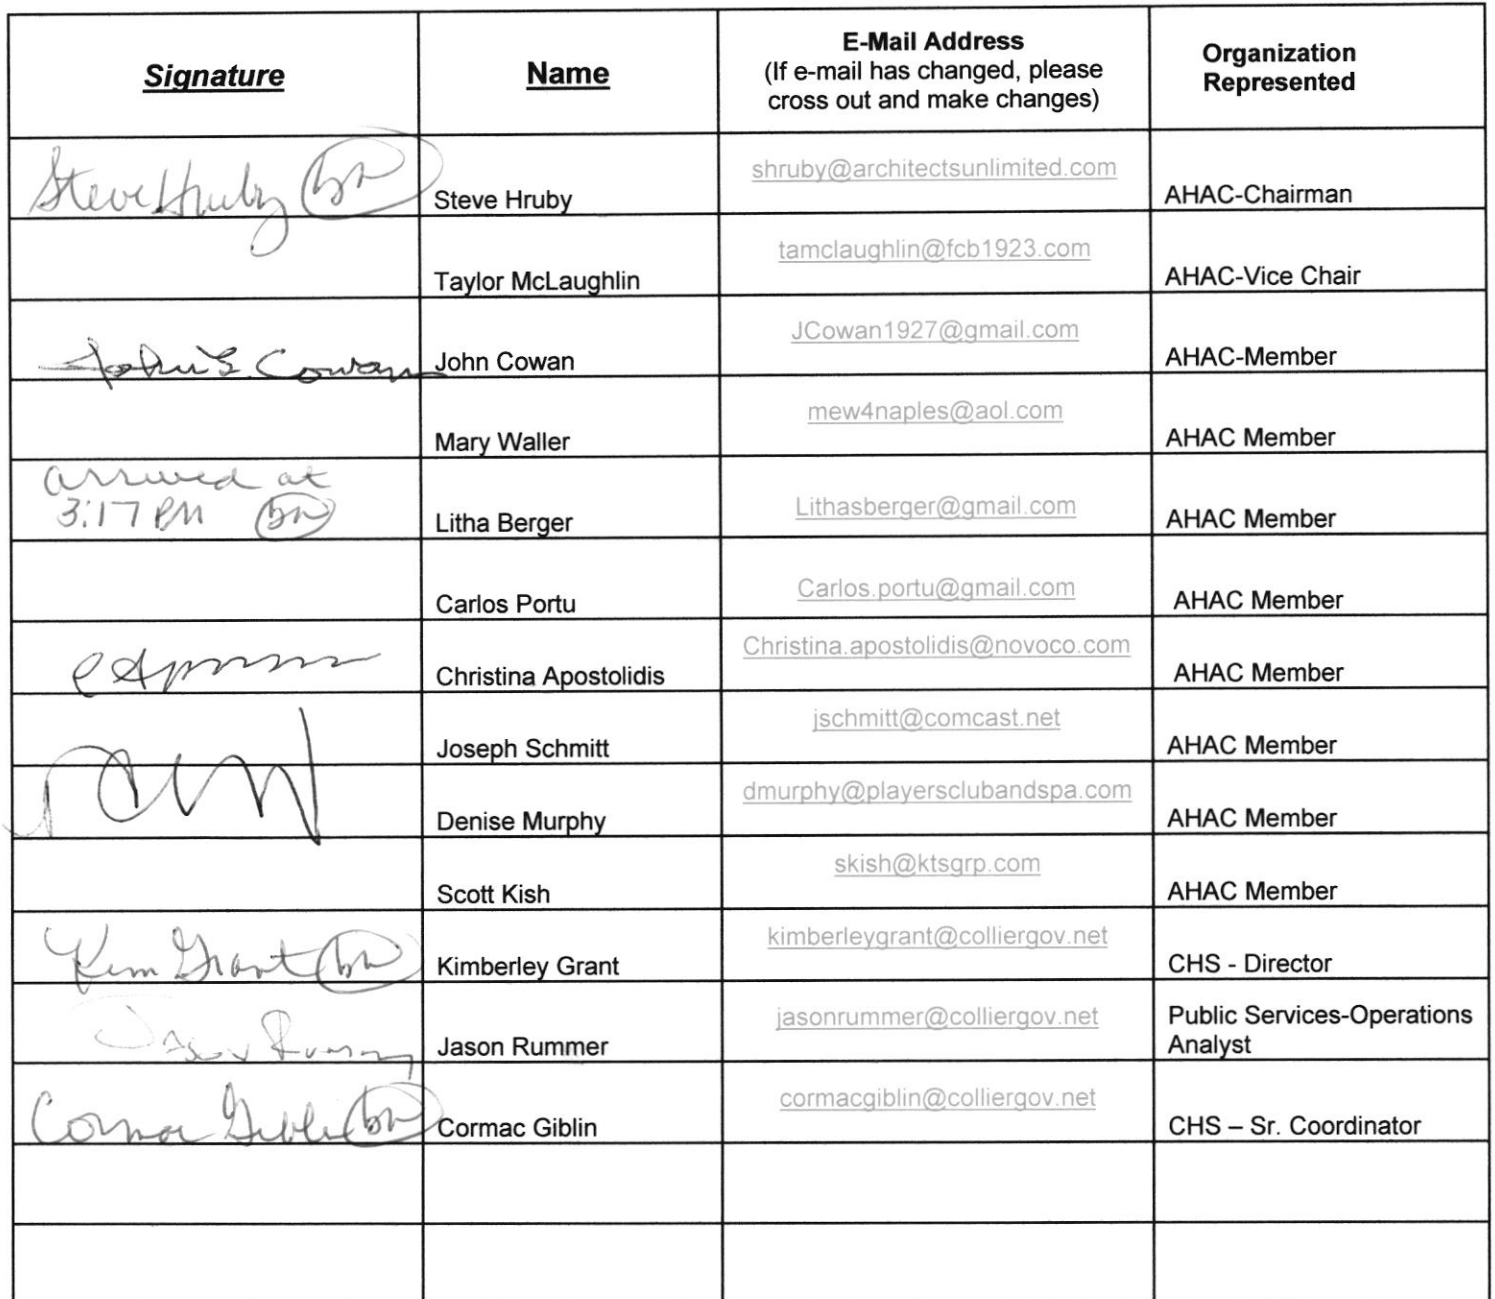 Signature
Name
E-Mail Address
(If e-mail has changed, please
cross out and make changes)
Organization
Represented
Steve Hruby
Steve Hruby
shruby@architectsunlimited.com
AHAC-Chairman
Taylor McLaughlin
tamclaughlin@fcb1923.com
AHAC-Vice Chair
John Cowan
JCowan1927@gmail.com
AHAC-Member
Mary Waller
mew4naples@aol.com
AHAC Member
arrived at
3:17 PM
Litha Berger
Lithasberger@gmail.com
AHAC Member
Carlos Portu
Carlos.portu@gmail.com
AHAC Member
Christina Apostolidis
Christina.apostolidis@novoco.com
AHAC Member
Joseph Schmitt
jschmitt@comcast.net
AHAC Member
Denise Murphy
dmurphy@playersclubandspa.com
AHAC Member
Scott Kish
skish@ktsgrp.com
AHAC Member
Kim Grant
Kimberley Grant
kimberleygrant@colliergov.net
CHS - Director
Jason Rummer
jasonrummer@colliergov.net
Public Services-Operations
Analyst
Cormac Giblin
Cormac Giblin
cormacgiblin@colliergov.net
CHS – Sr. Coordinator